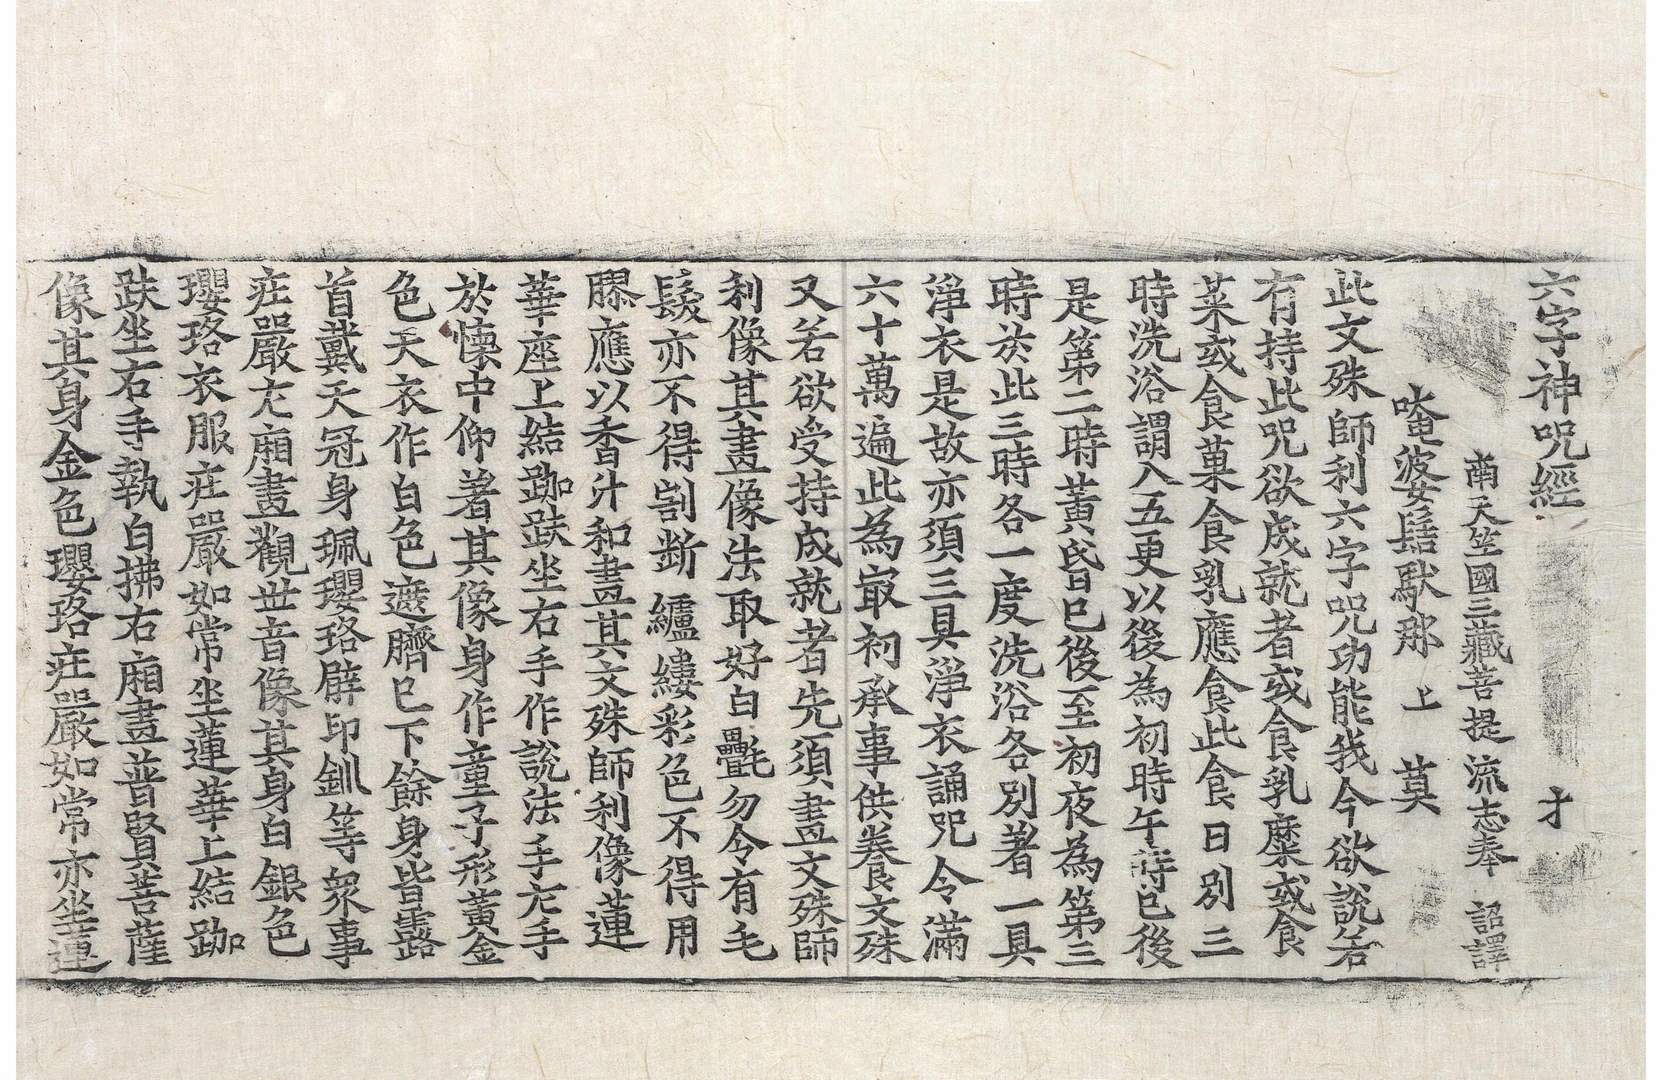 六字神呪經 才
南天竺國三藏菩提流志奉 詔譯
唵婆髻馱那 上 莫
此文殊師利六字呪功能我今欲說若
有持此呪欲成就者或食乳糜或食
菜或食菓食乳應食此食日別三
時洗浴謂八五更以後為初時午時已後
是第二時黃昏已後至初夜為第三
時於此三時各一度洗浴各別著一具
淨衣是故亦須三具淨衣誦呪令滿
六十萬遍此為㝡初承事供養文殊
又若欲受持成就者先須畫文殊師
利像其畫像法取好白㲲勿令有毛
髮亦不得割斷纑縷彩色不得用
膠應以香汁和畫其文殊師利像蓮
華座上結跏趺坐右手作說法手左手
於懷中仰著其像身作童子形黃金
色天衣作白色遮臍已下餘身皆露
首戴天冠身珮瓔珞臂印釧等眾事
庄嚴左廂畫觀世音像其身白銀色
瓔珞衣服庄嚴如常坐蓮華上結跏
趺坐右手執白拂右廂畫普賢菩薩
像其身金色瓔珞庄嚴如常亦坐蓮